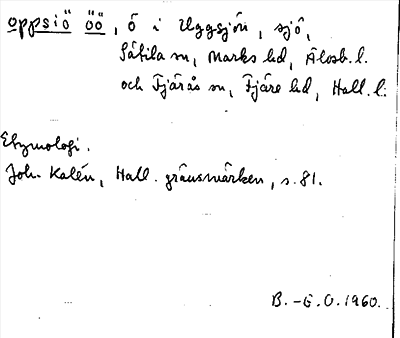 oppsiö öö, ö i Uggsjön, sjö,
Sätila sn, Marks hd, Älvsb. l.
och Fjärås sn, Fjäre hd, Hall. l.
Etymologi.
Joh. Kalén, Hall. gränsmärken, s. 81.
B.-E. O. 1960.